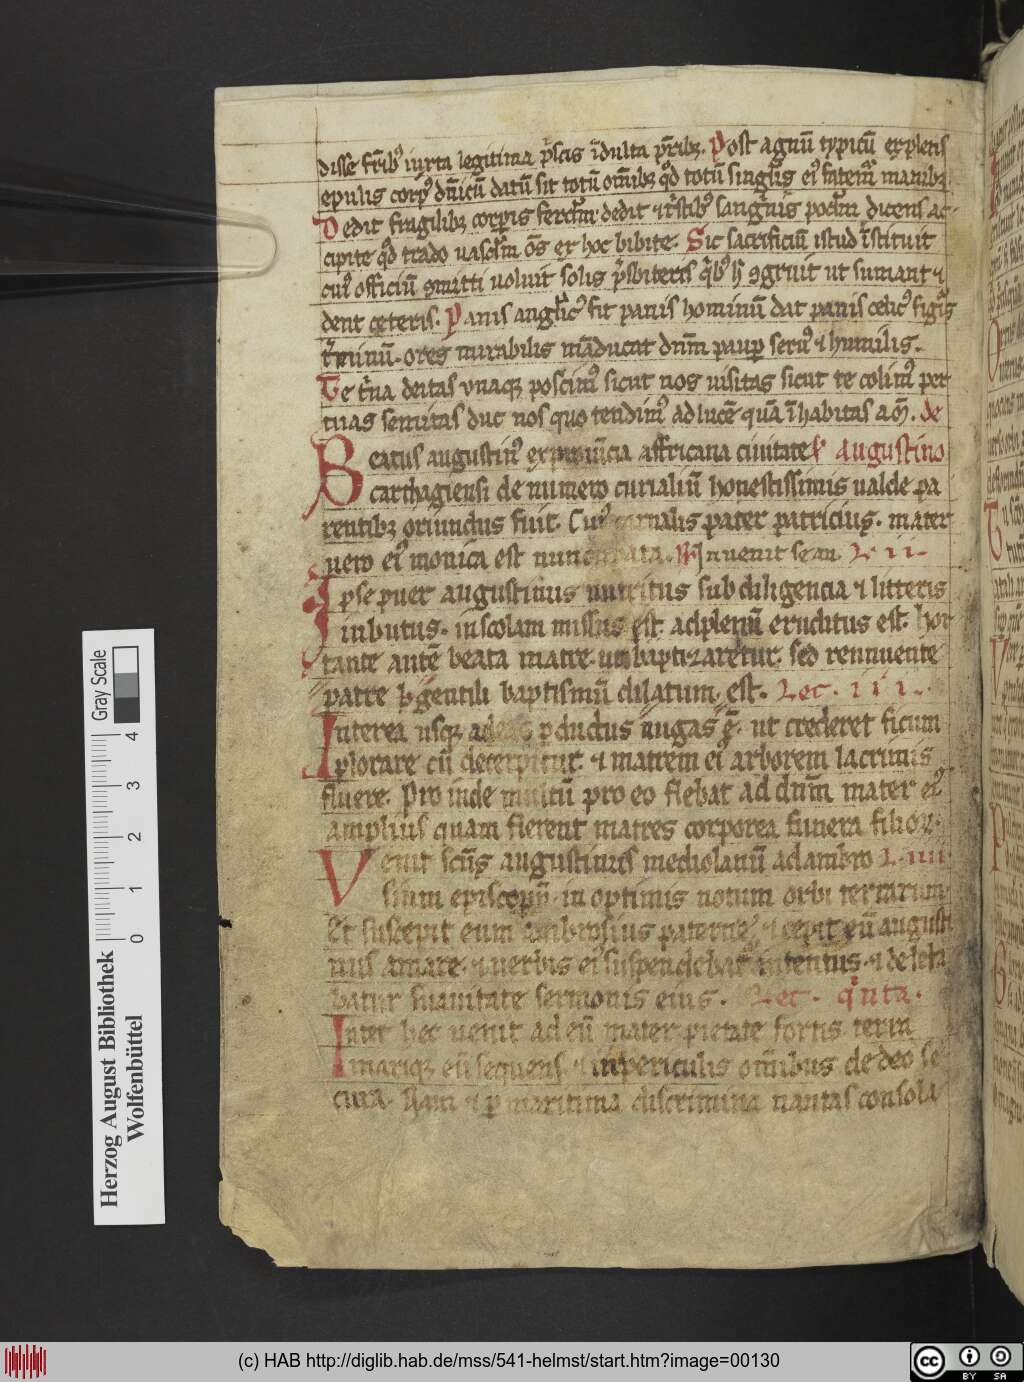 disse fr̄ibꝰ iuxta legitima p̄scis īdulta pr̄ibꝫ. Post agnū typicū expletis
epulis corpꝰ dn̄icū datū sic totū om̄ibꝫ qd̄ totū singlis eiꝰ fatem̄ manibꝫ
Dedit fragilibꝫ corꝑis ferclm̄ dedit ⁊ tͥstibꝰ sangͥnis poclm̄ dicens ac
cipite qd̄ trado vasclm̄ om̄s ex hoc bibite. Sic sacrificiū istud īstituit
cuiꝰ officiū ꝯmitti voluit solis p̄sbiteris qͥbꝰ sͥ ꝯgruit ut sumant ⁊
dent ceteris. Panis anglicꝰ fit panis hominū dat panis celicꝰ figͥs
tͥminū. o res mirabilis māducat dn̄m paupꝑ seruꝰ ⁊ humilis.
Te tͥna deitas vnaqꝫ poscimꝰ sicut nos uisitas sicut te colimꝰ per
tuas semitas duc nos quo tendimꝰ ad lucē quā īhabitas am̄. de
Beatus augustinꝰ ex prouīcia affricana ciuitate s̄ augustino
carthagiensi de numero curialiū honestissimis ualde pa
rentibꝫ oriundus fuit. Cuiꝰ carnalis pater patricius. mater
uero eiꝰ monica est nuncupata. Inuenit se an L ii.
Ipse puer augustinus nutritus sub diligencia ⁊ litteris
inbutus. in scolam missus est. ad plenū eruditus est. hor
tante autē beata matre. ut baptizaretur. sed rennuente
patre gentili baptismū dilatum est. Lec. iii.
Interea usqꝫ adeo ꝑductus nugas ē. ut crederet ficum
plorare cū decerpitur. ⁊ matrem ei arborem lacrimis
fluere. Pro inde multū pro eo flebat ad dn̄m mater eiꝰ
amplius quam flerent matres corporea funera filioꝝ.
Venit scūs augustinus mediolanū ad ambro L. iiii
sium episcopū in optimis notum orbi terrarum.
Et suscepit eum ambrosius paterne. ⁊ cepit eū augusti
nus amare. ⁊ uerbis ei suspendebat intentus. ⁊ delecta
batur suauitate sermonis eius. Lec. qͥnta.
Inter hec uenit ad eū mater pietate fortis terra
mariqꝫ eū sequens. ⁊ in periculis om̄ibus de deo se
cura. Nam ⁊ ꝑ maritima discrimina nautas consola
Gray Scale
4
3
2
1
0
Herzog August Bibliothek
Wolfenbüttel
(c) HAB http://diglib.hab.de/mss/541-helmst/start.htm?image=00130
cc
BY SA